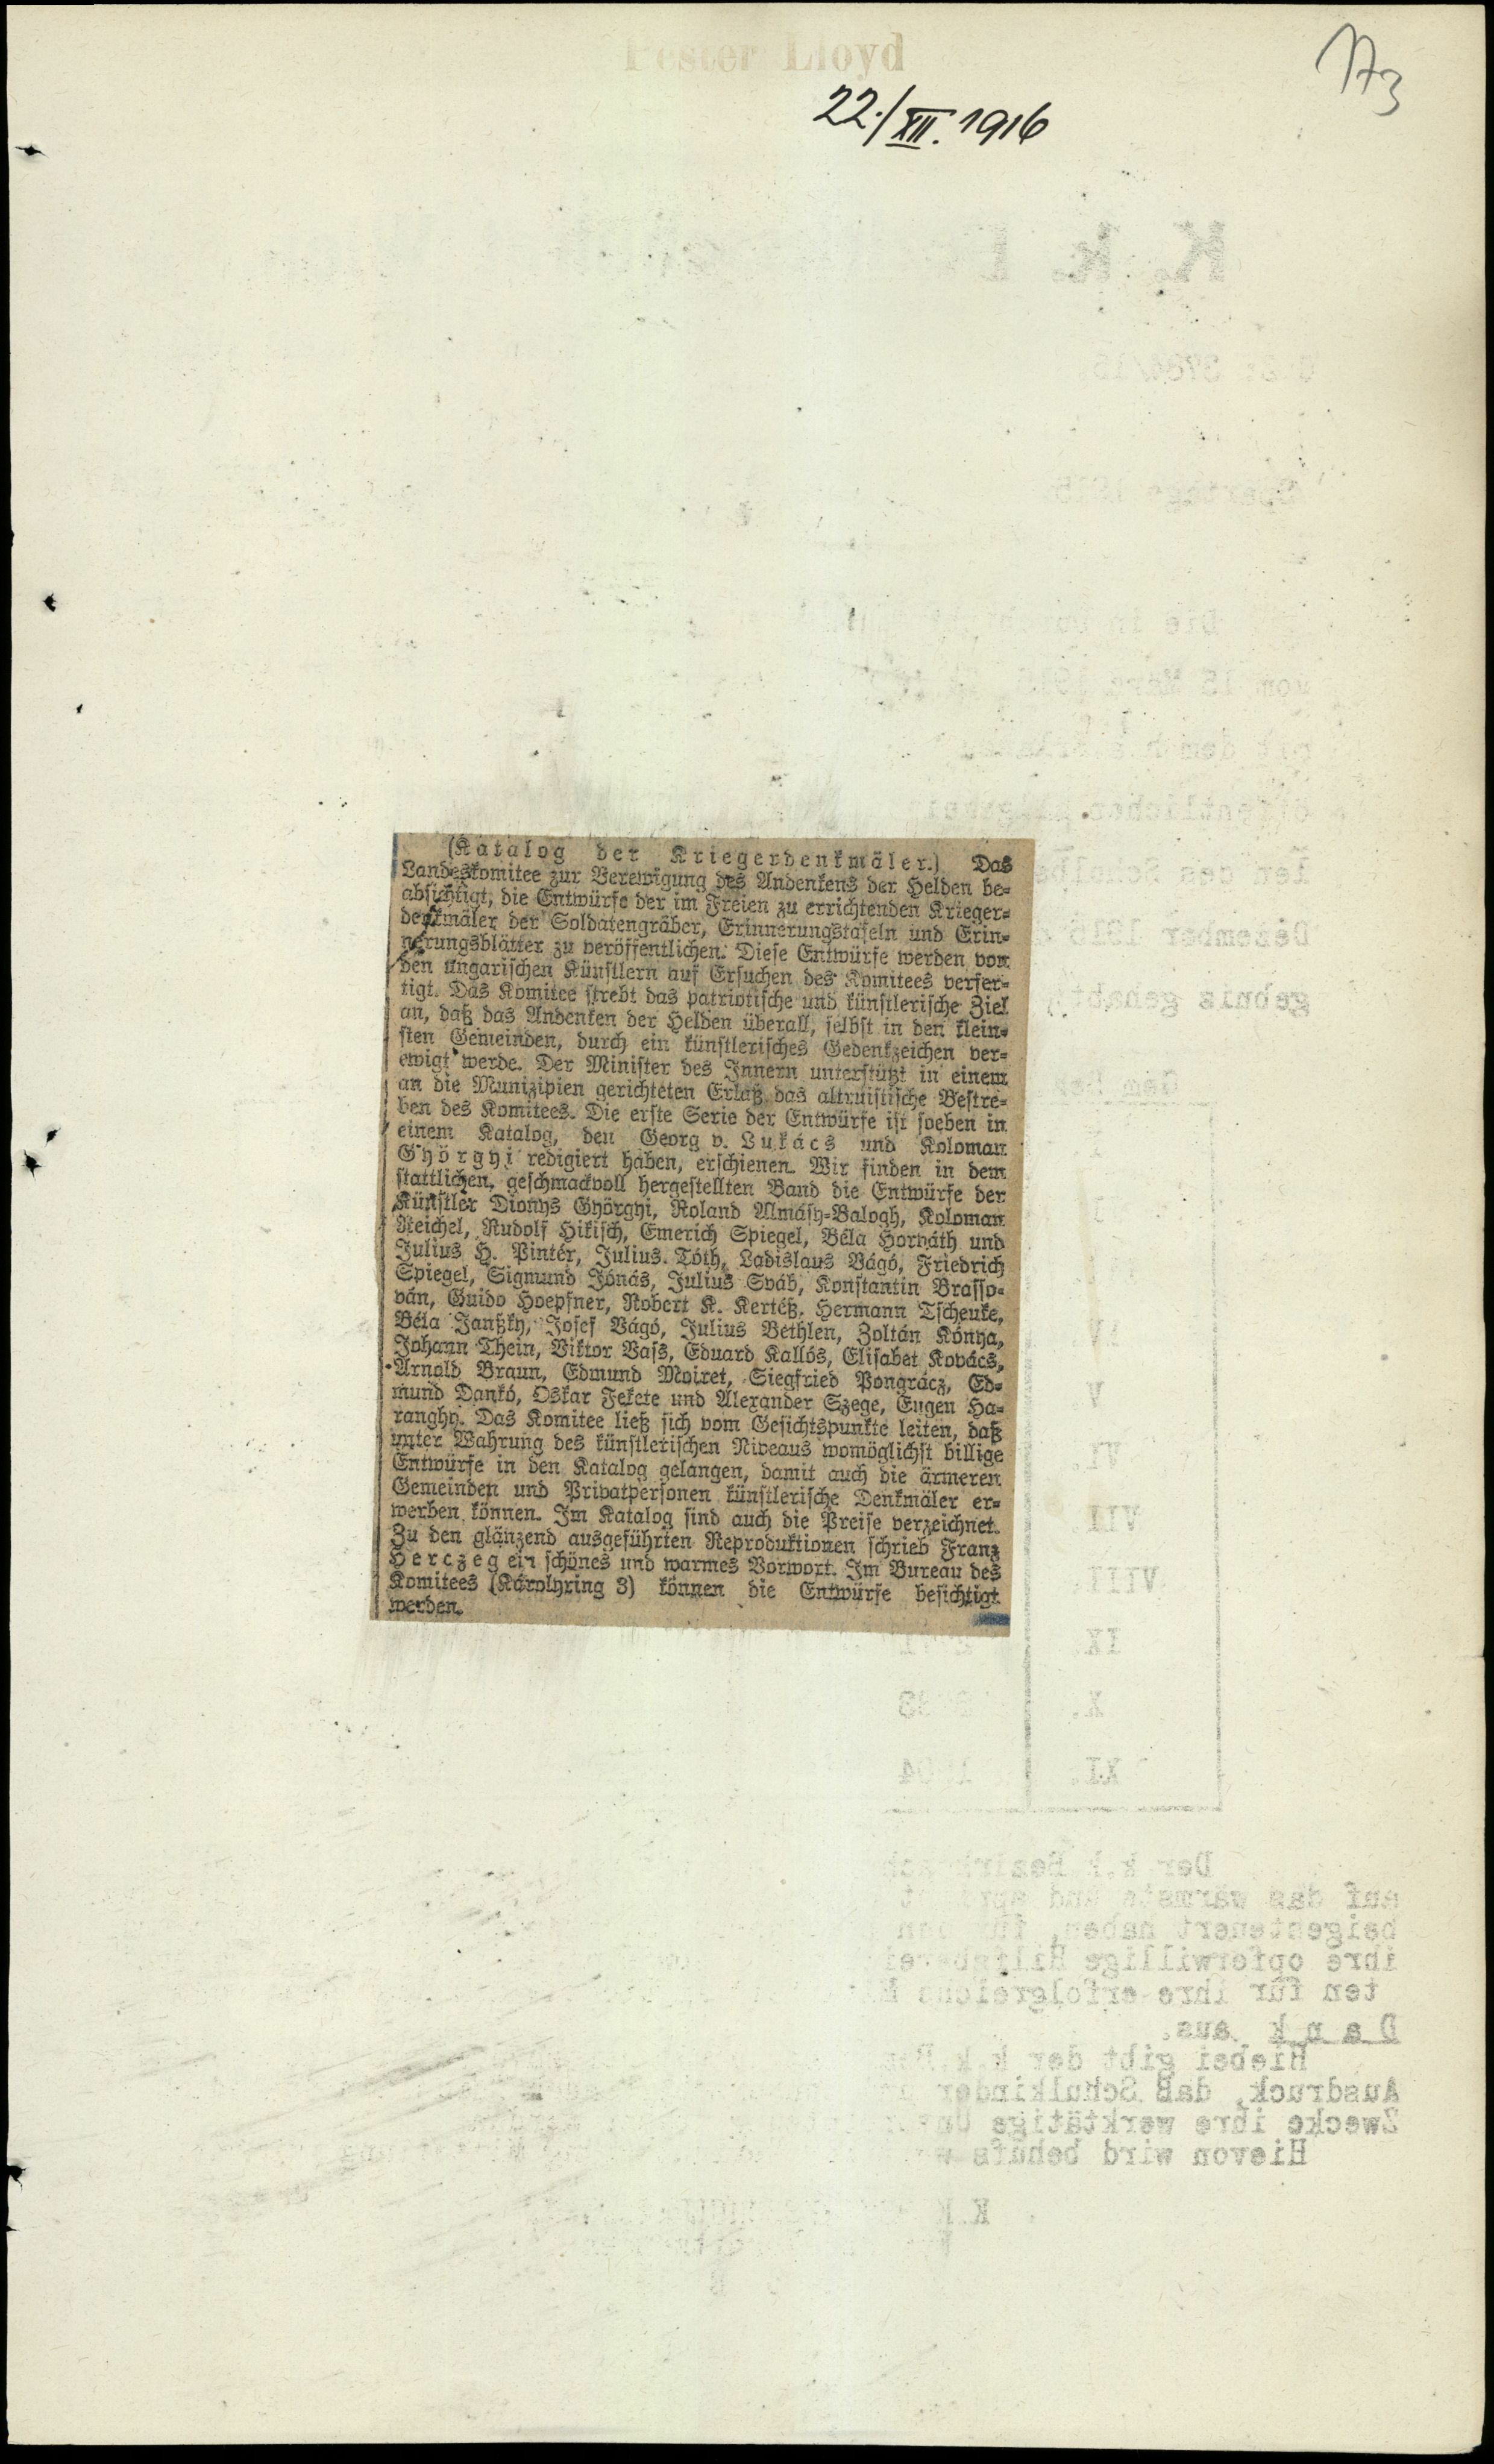 Pester Lloyd
22./XII. 1916
(Katalog der Kriegerdenkmäler.) Das
Landeskomitee zur Verewigung des Andenkens der Helden be-
absichtigt, die Entwürfe der im Freien zu errichtenden Krieger-
denkmäler der Soldatengräber, Erinnerungstafeln und Erin-
nerungsblätter zu veröffentlichen. Diese Entwürfe werden von
den ungarischen Künstlern auf Ersuchen des Komitees verfer-
tigt. Das Komitee strebt das patriotische und künstlerische Ziel
an, daß das Andenken der Helden überall, selbst in den klein-
sten Gemeinden, durch ein künstlerisches Gedenkzeichen ver-
ewigt werde. Der Minister des Innern unterstützt in einem
an die Munizipien gerichteten Erlaß das altruistische Bestre-
ben des Komitees. Die erste Serie der Entwürfe ist soeben in
einem Katalog, den Georg v. Lukács und Koloman
Györgyi redigiert haben, erschienen. Wir finden in dem
stattlichen, geschmackvoll hergestellten Band die Entwürfe der
Künstler Dionys Györgyi, Roland Almásy-Balogh, Koloman
Reichel, Rudolf Hikisch, Emerich Spiegel, Béla Horváth und
Julius H. Pintér, Julius Tóth, Ladislaus Vágó, Friedrich
Spiegel, Sigmund Jónás, Julius Sváb, Konstantin Brasso-
ván, Guido Hoepfner, Robert K. Kertéß, Hermann Tscheuke,
Béla Janßky, Josef Vágó, Julius Bethlen, Zoltán Kónya,
Johann Thein, Viktor Vass, Eduard Kallós, Elisabet Kovács,
Arnold Braun, Edmund Moiret, Siegfried Pongrácz, Ed-
mund Dankó, Oskar Fekete und Alexander Szege, Eugen Ha-
ranghy. Das Komitee ließ sich vom Gesichtspunkte leiten, daß
unter Wahrung des künstlerischen Niveaus womöglichst billige
Entwürfe in den Katalog gelangen, damit auch die ärmeren
Gemeinden und Privatpersonen künstlerische Denkmäler er-
werben können. Im Katalog sind auch die Preise verzeichnet.
Zu den glänzend ausgeführten Reproduktionen schrieb Franz
Herczeg ein schönes und warmes Vorwort. Im Bureau des
Komitees (Károlyring 3) können die Entwürfe besichtigt
werden.